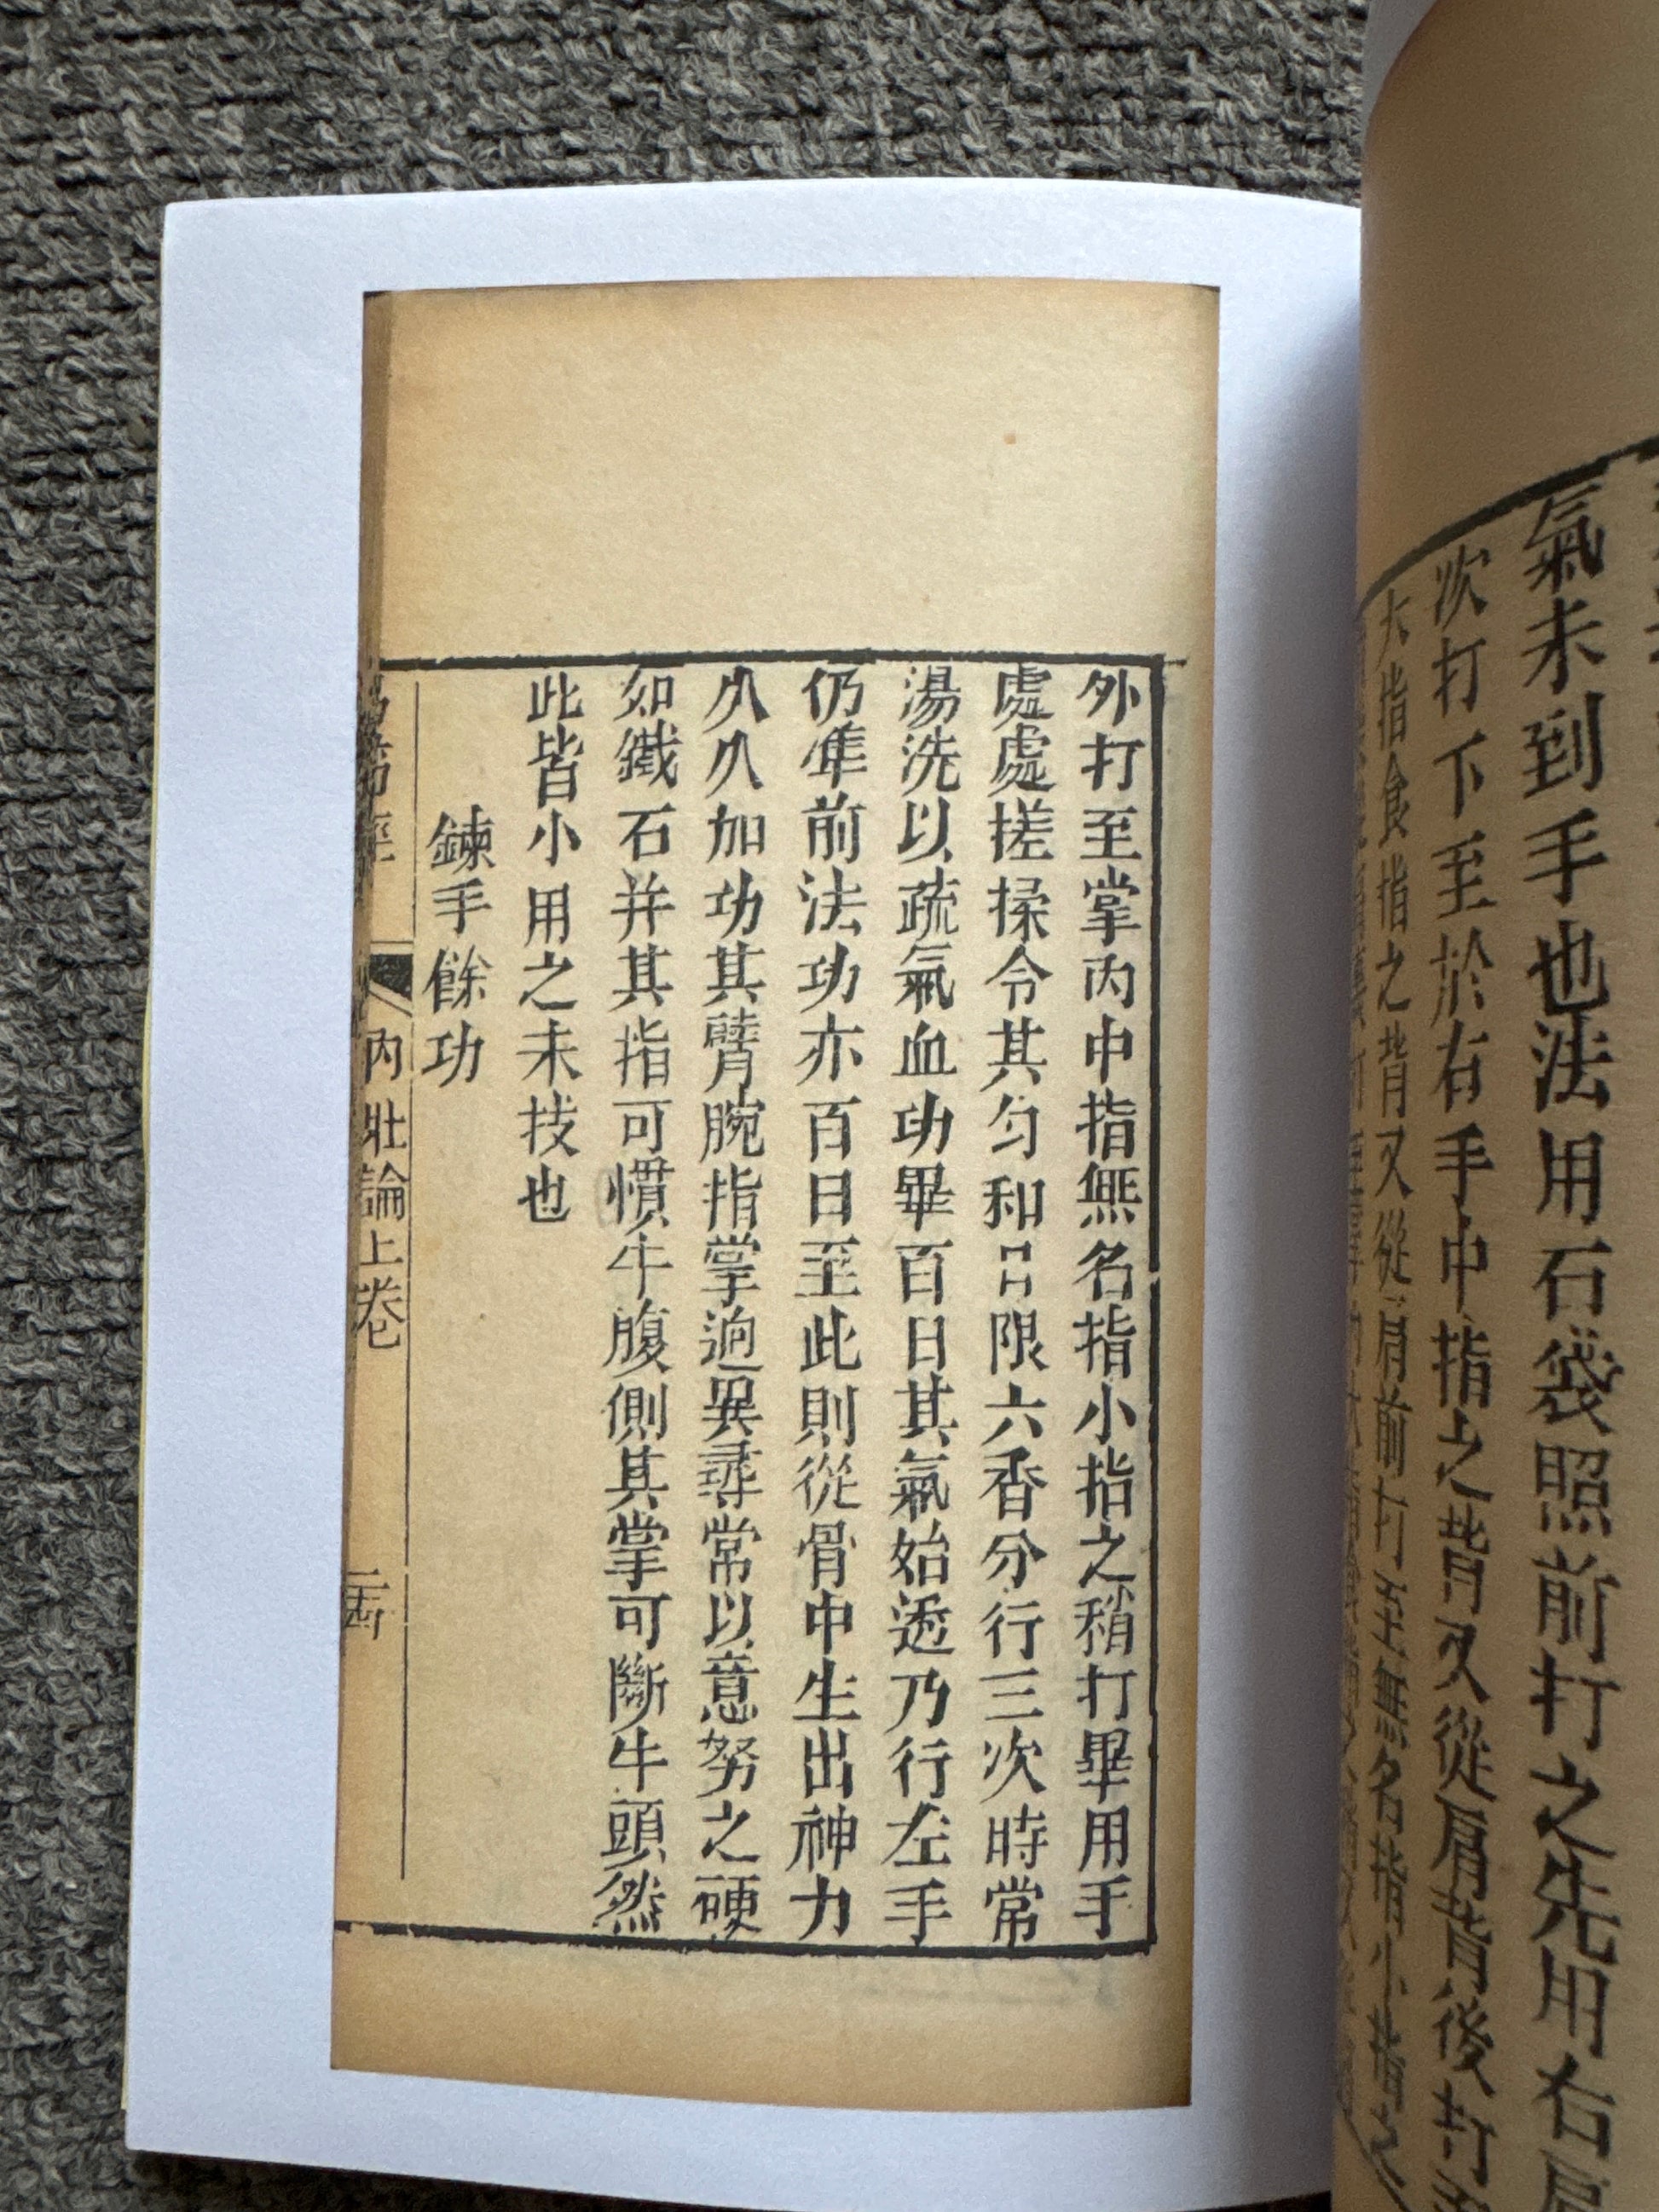 氣未到手也法用石袋照前打之先用右肩
次打下至於右手中指之背又從肩背後打至
大指食指之背又從肩前打至無名指小指之
外打至掌內中指無名指小指之稍打畢用手
處處搓揉令其勻和日限六香分行三次時常
湯洗以疏氣血功畢百日其氣始透乃行左手
仍准前法功亦百日至此則從骨中生出神力
久久加功其臂腕指掌逈異尋常以意努之硬
如鐵石并其指可慣牛腹側其掌可斷牛頭然
此皆小用之末技也
鍊手餘功
易筋經 內壯論上卷